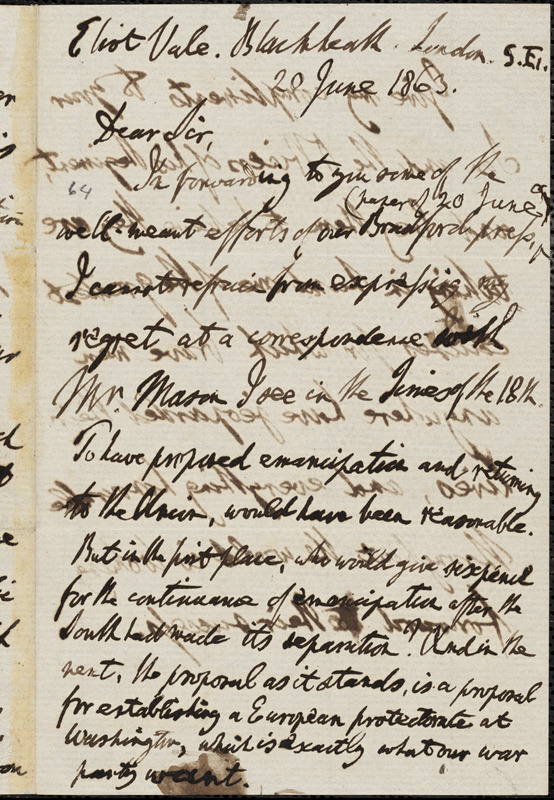 Eliot Vale. Blackheath. London. S.E.
20 June 1863.
Dear Sir,
64
In forwarding to you some of the
(paper of 20 June)
well-meant efforts of our Bradford press,
I cannot refrain from expressing my
regret at a correspondence with
Mr. Mason I see in the Times of the 18th.
To have proposed emancipation and returning
to the Union, would have been reasonable.
But in the first place, who would give sixpence
for the continuance of emancipation after the
South had made its separation? And in the
next, the proposal as it stands, is a proposal
for establishing a European protectorate at
Washington, which is exactly what our war
party want.